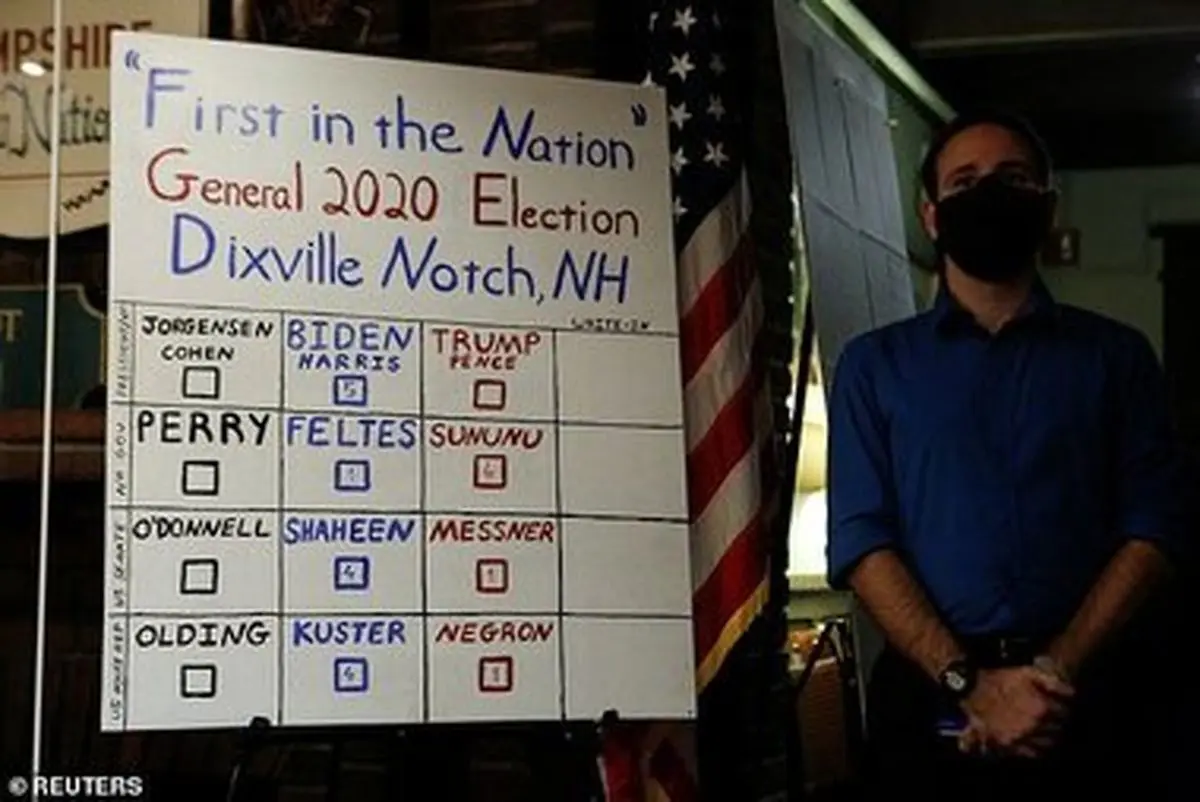 MPSHIRE
"First in the Nation"
General 2020 Election
Dixville Notch, NH
WRITE-IN
JORGENSEN BIDEN TRUMP
COHEN HARRIS PENCE
5
NH GOV PERRY FELTES SUNUNU
1 4
US SENATE O'DONNELL SHAHEEN MESSNER
4 1
US HOUSE REP OLDING KUSTER NEGRON
4 1
© REUTERS